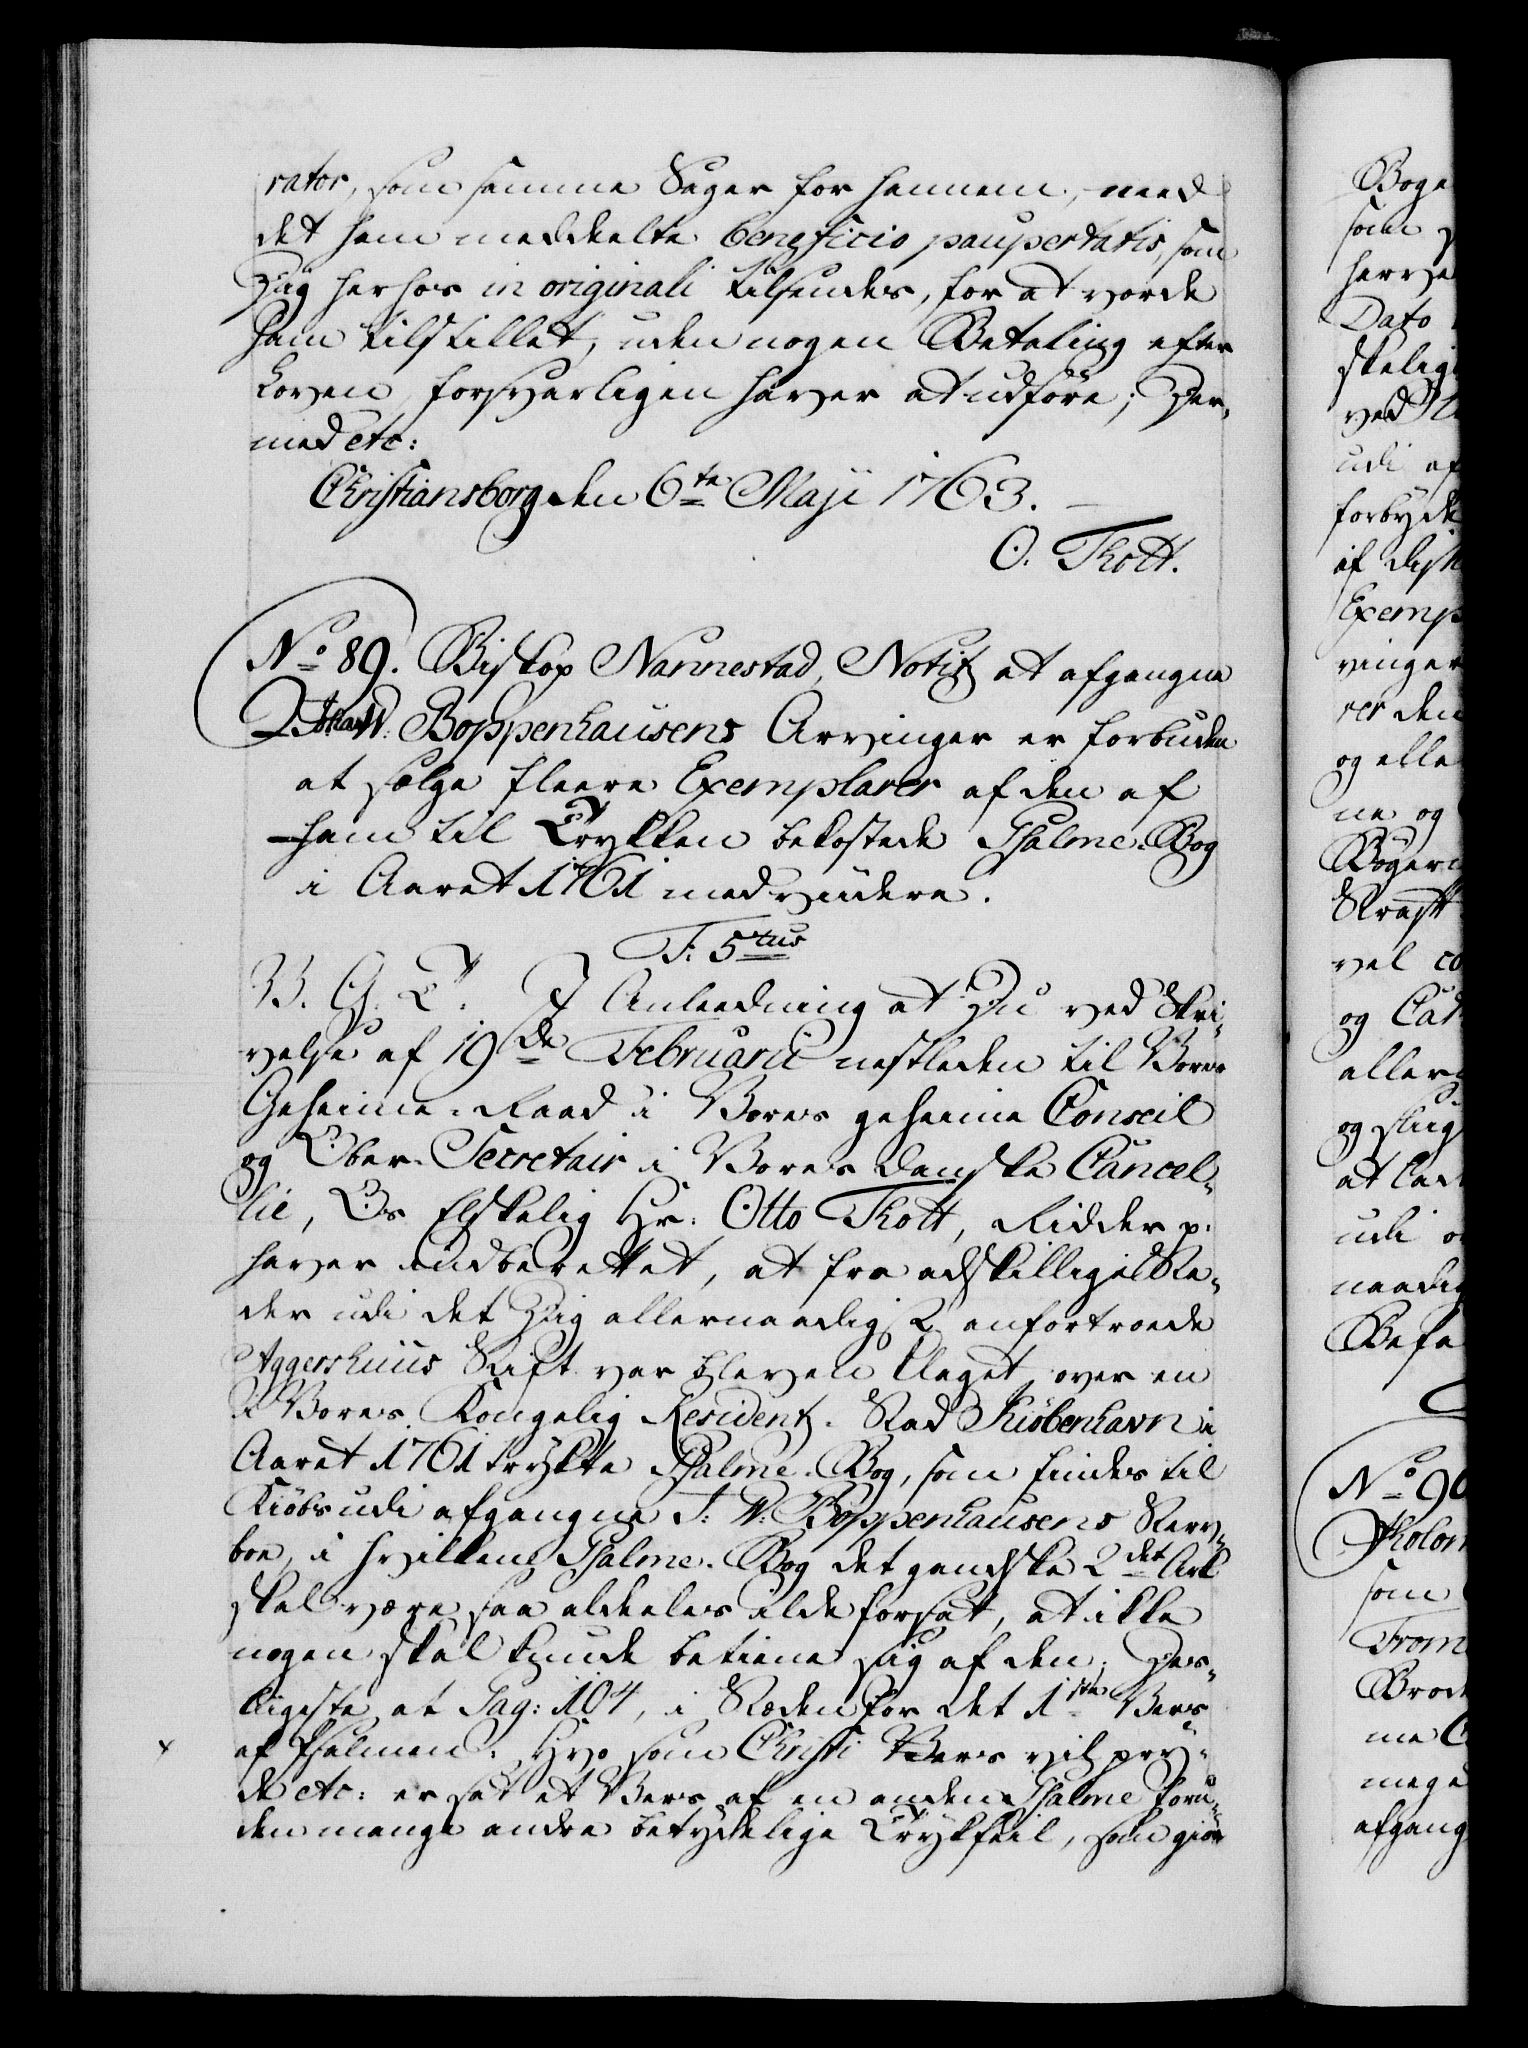 rator, som samme Sager for hannem, med
det ham meddeelte beneficio paupertatis, som
Dig herhos in originali tilsendes, for at vorde
ham tilstillet, uden nogen Betaling efter
Loven forsvarligen haver at udføre; Der-
med etc:
Christiansborg den 6te Maji 1763.
O. Thott.
No 89. Biskop Nannestad, Notif: at afgangne
Johan W: Boppenhausens Arvinger er forbuden
at sælge fleere Exemplarer af den af
ham til Trykken bekostede Psalme-Bog
i Aaret 1761 med videre.
F: 5tus
V. G. T. I Anleedning at Du ved Skri-
velse af 19de Februarii nestleden til Vores
Geheime-Raad i Vores geheime Conseil
og Ober-Secretair i Vores danske Cancel-
lie, Os Elskelig Hr: Otto Thott, Ridder p:
haver indberettet, at fra adskillige Ste-
der udi det Dig allernaadigst anfortroede
Aggershuus Stift var bleven klaget over en
i Vores Kongelig Residentz-Stad Kiøbenhavn i
Aaret 1761 trykte Psalme-Bog, som findes til
Kiøbs udi afgangne J: W: Boppenhausens Sterv-
boe, i hvilken Psalme-Bog det gandske 2det Ark
skal være saa aldeeles ilde forsat, at ikke
nogen skal kunde betiene sig af den; Des-
ligeste at Pag: 104, i Stæden for det 1ste Vers
af Psalmen: Hvo som Christi Vers vil pry-
de etc: er sat et Vers af en anden Psalme foru-
den mange andre betydelige Trykfeil, som giør
Boge
som
Dato
skelig
ved
udi af
forbyde
af
Exemp
vinger
rer den
og alle
ne og
vel
og
aller
og
at
udi
naadig
Befa
No 90
som
From
me
mege
afgang